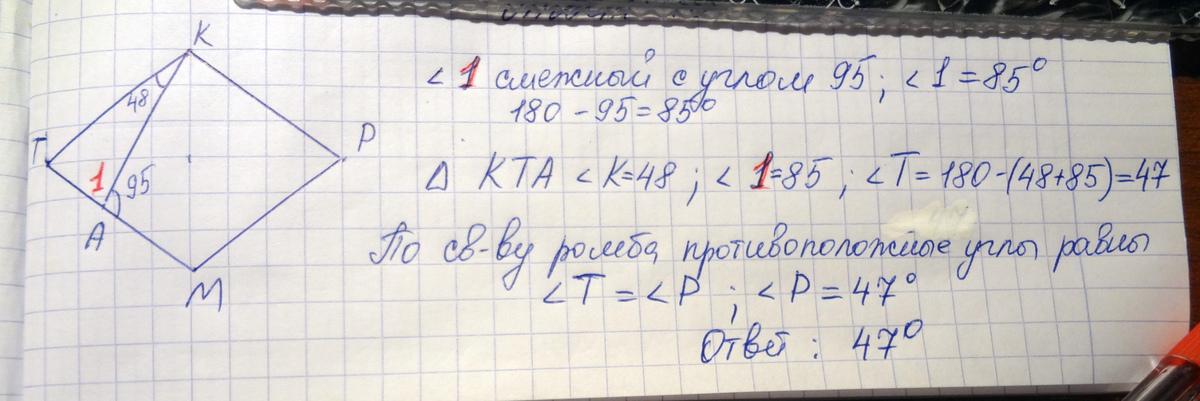 K
48
T
P
1
95
A
M
< 1 смежный с углом 95 ; < 1 = 85°
180 - 95 = 85°
Δ KTA < K=48 ; < 1=85 ; < T= 180-(48+85)=47
По св-ву ромба противоположные углы равны
< T = < P ; < P = 47°
Ответ : 47°